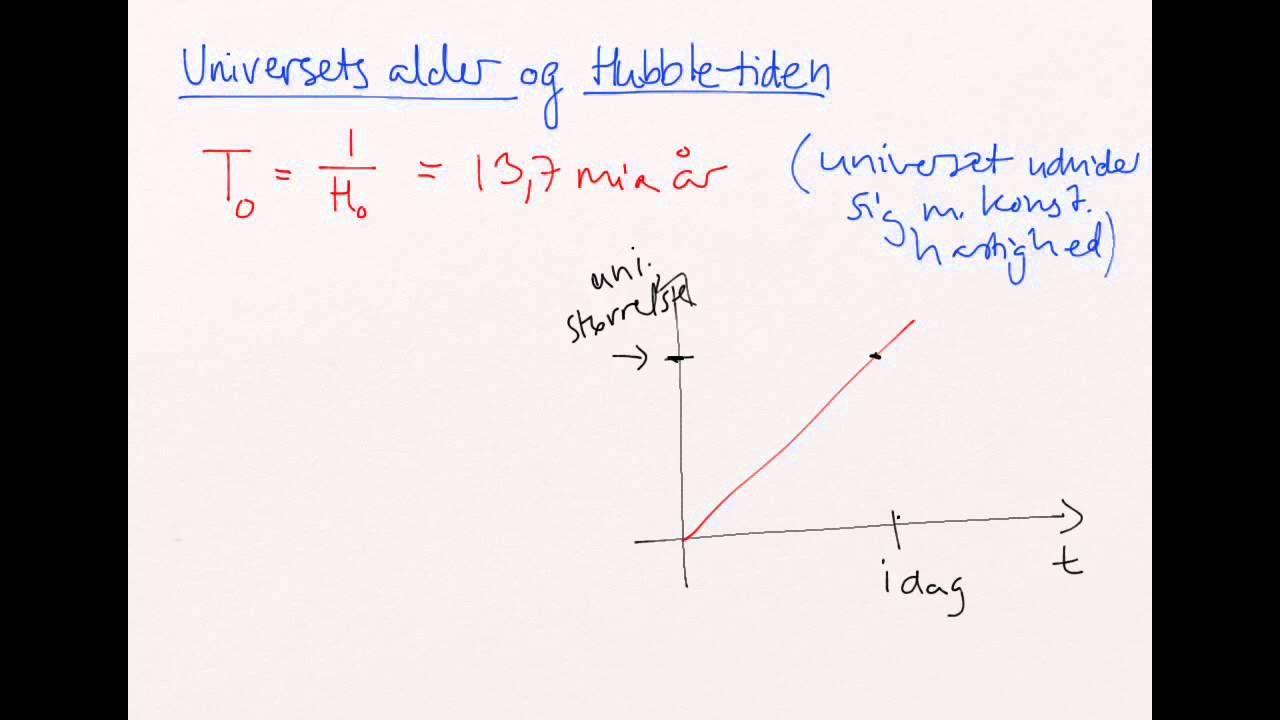 Universets alder og Hubble-tiden
T₀ = 1/H₀ = 13,7 mia år
(universet udvider
sig m. konst.
hastighed)
uni.
størrelse
→
i dag
t